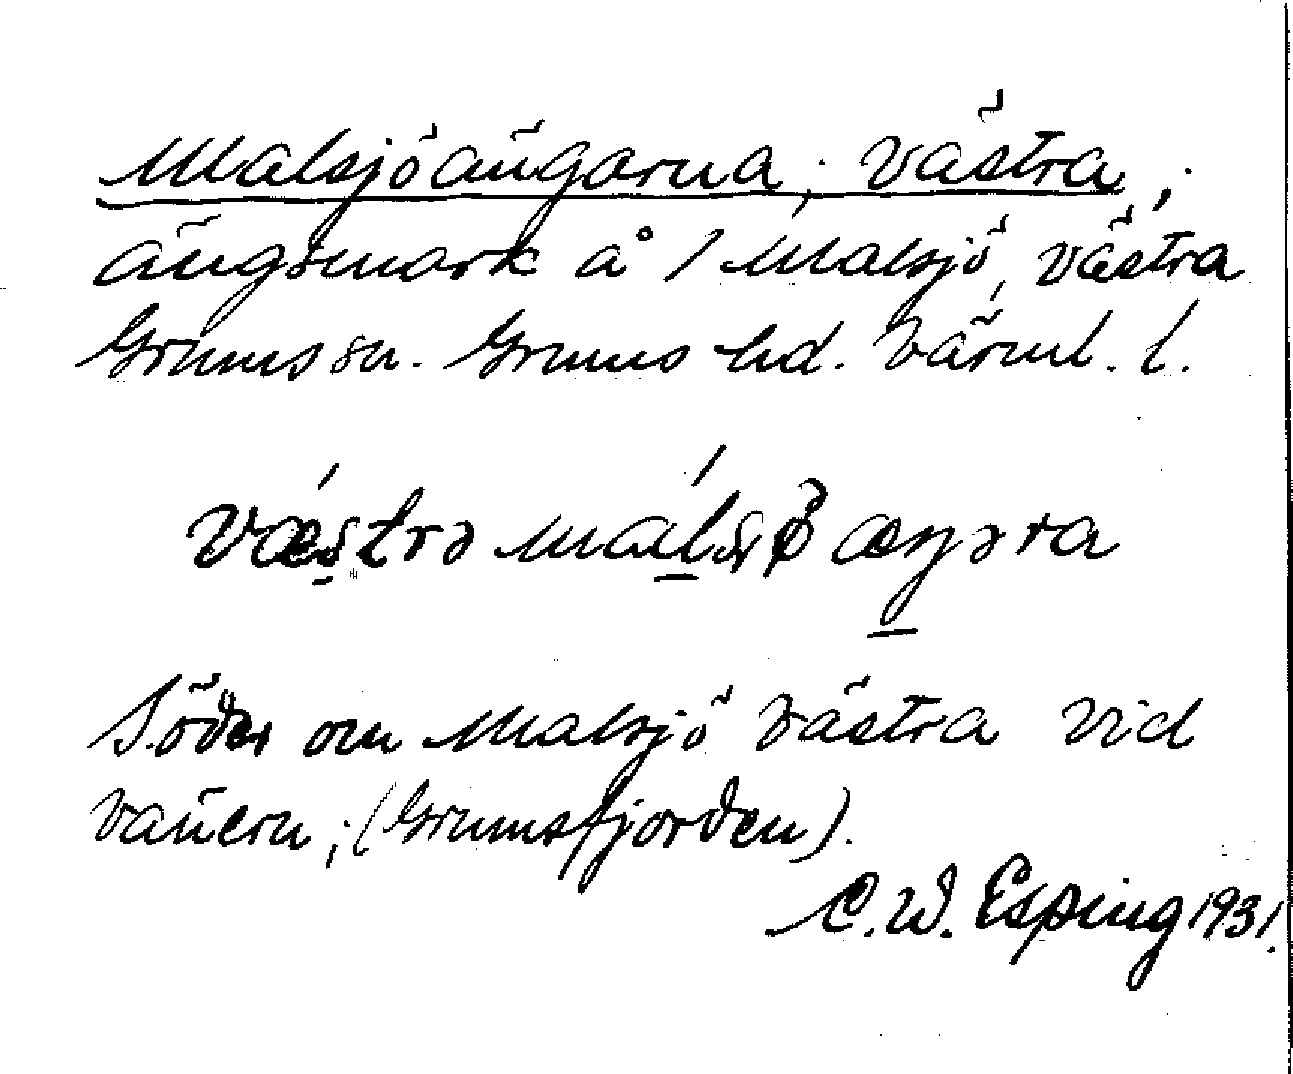 Malsjöängarna, västra;
ängsmark å 1 Malsjö, västra
Grums sn. Grums hd. Värml. l.
væstrə malsjö æŋəra
Söder om Malsjö västra vid
Vänern, (Grumsfjorden).
C. W. Esping 1931.